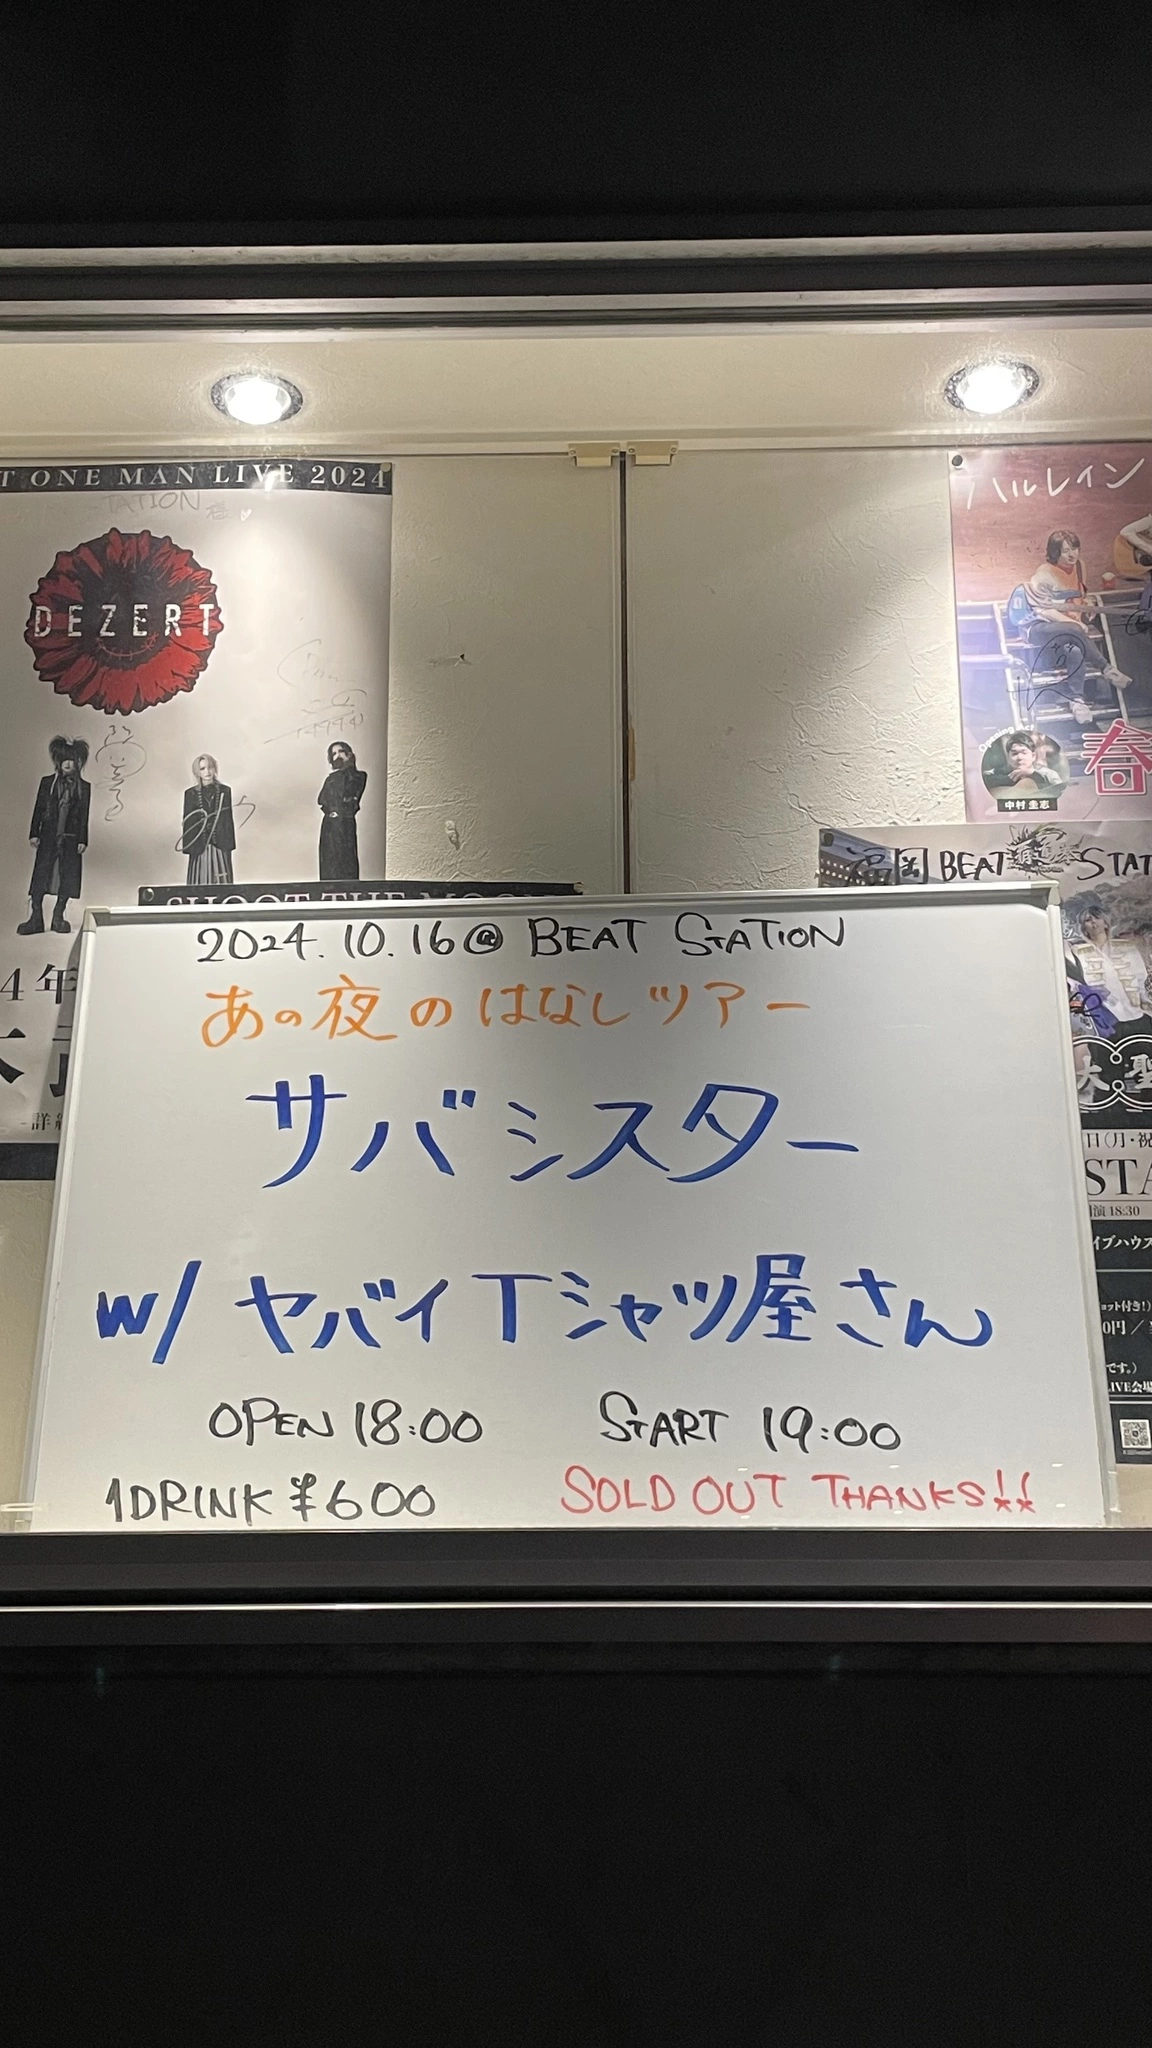 T ONE MAN LIVE 2024
TATION 様
DEZERT
ハルレイン
Opening Act
中村 圭志
春
福岡 BEAT STAT
SHOOT THE MOON
4年
詳細
大 聖
日(月・祝
STA
演 18:30
イブハウス
ョット付き!)
0円/
です。)
LIVE会場
2024.10.16@ BEAT STATION
あの夜のはなしツアー
サバシスター
w/ ヤバイTシャツ屋さん
OPEN 18:00 START 19:00
1DRINK ¥600 SOLD OUT THANKS!!